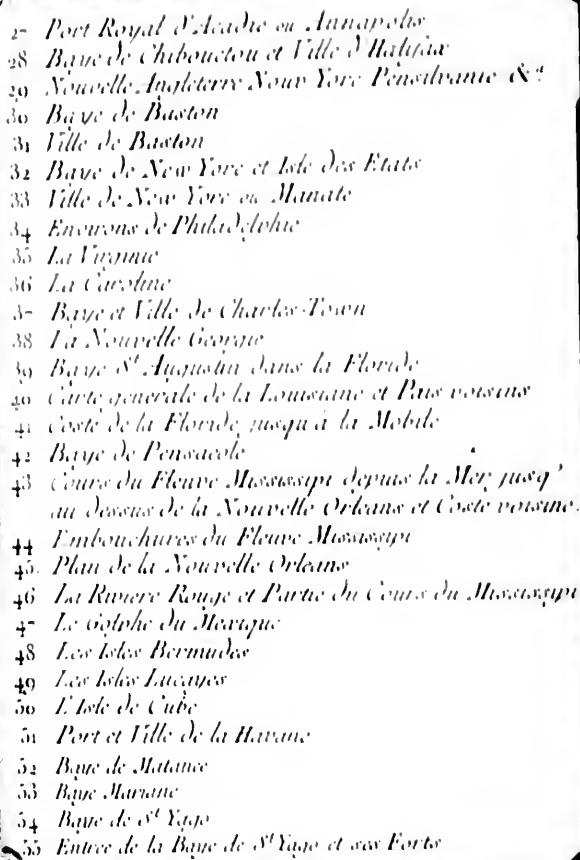 27 Port Royal d'Acadie ou Annapolis
28 Baye de Chibouctou et Ville d'Halifax
29 Nouvelle Angleterre Nouv Yorc Pensilvanie &c.
30 Baye de Baston
31 Ville de Baston
32 Baye de New Yorc et Isle des Etats
33 Ville de New Yorc ou Manate
34 Environs de Philadelphie
35 La Virginie
36 La Caroline
37 Baye et Ville de Charles-Town
38 La Nouvelle Georgie
39 Baye St Augustin dans la Floride
40 Carte generale de la Louisiane et Pais voisins
41 Coste de la Floride, jusqu'à la Mobile
42 Baye de Pensacole
43 Cours du Fleuve Mississipi depuis la Mer jusq'
au dessus de la Nouvelle Orleans et Coste voisine.
44 Embouchures du Fleuve Mississipi
45. Plan de la Nouvelle Orleans
46 La Riviere Rouge et Partie du Cours du Mississipi
47 Le Golphe du Mexique
48 Les Isles Bermudes
49 Les Isles Lucayes
50 L'Isle de Cube
51 Port et Ville de la Havane
52 Baye de Matance
53 Baye Mariane
54 Baye de St Yago
55 Entrée de la Baye de St Yago et ses Forts